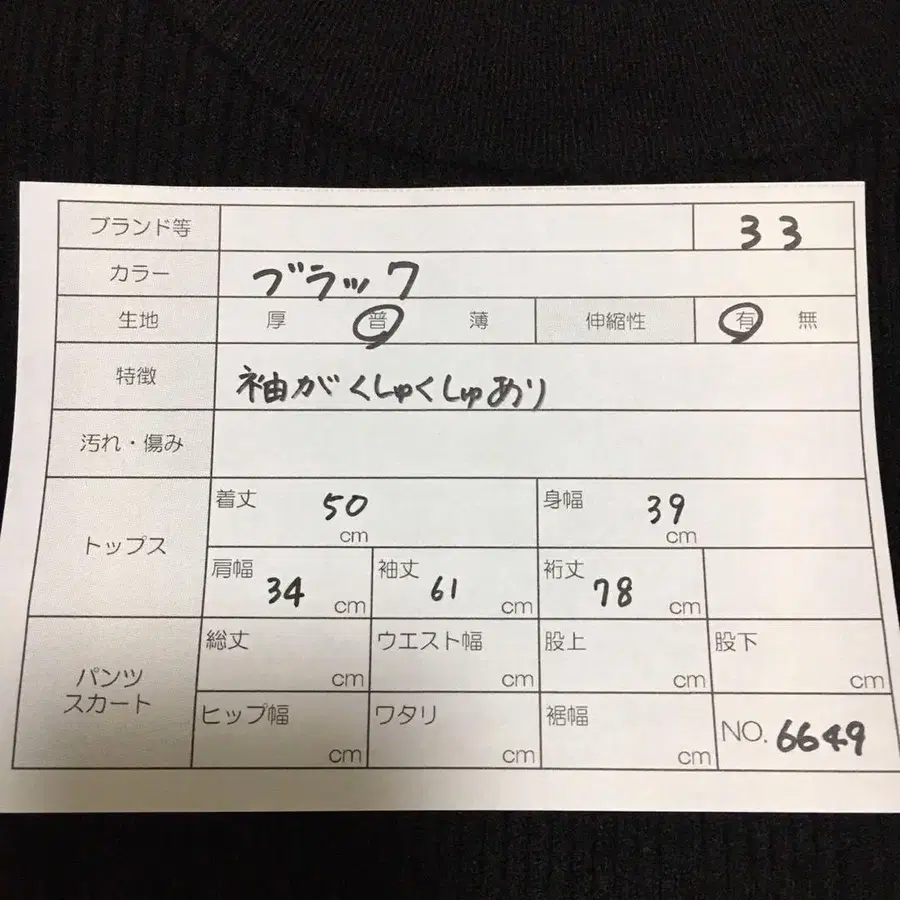 ブランド等 33
カラー ブラック
生地 厚 普 薄 伸縮性 有 無
特徴 袖がくしゅくしゅあり
汚れ・傷み
トップス
着丈 50 cm 身幅 39 cm
肩幅 34 cm 袖丈 61 cm 裄丈 78 cm
パンツ
スカート
総丈 cm ウエスト幅 cm 股上 cm 股下 cm
ヒップ幅 cm ワタリ cm 裾幅 cm NO. 6649